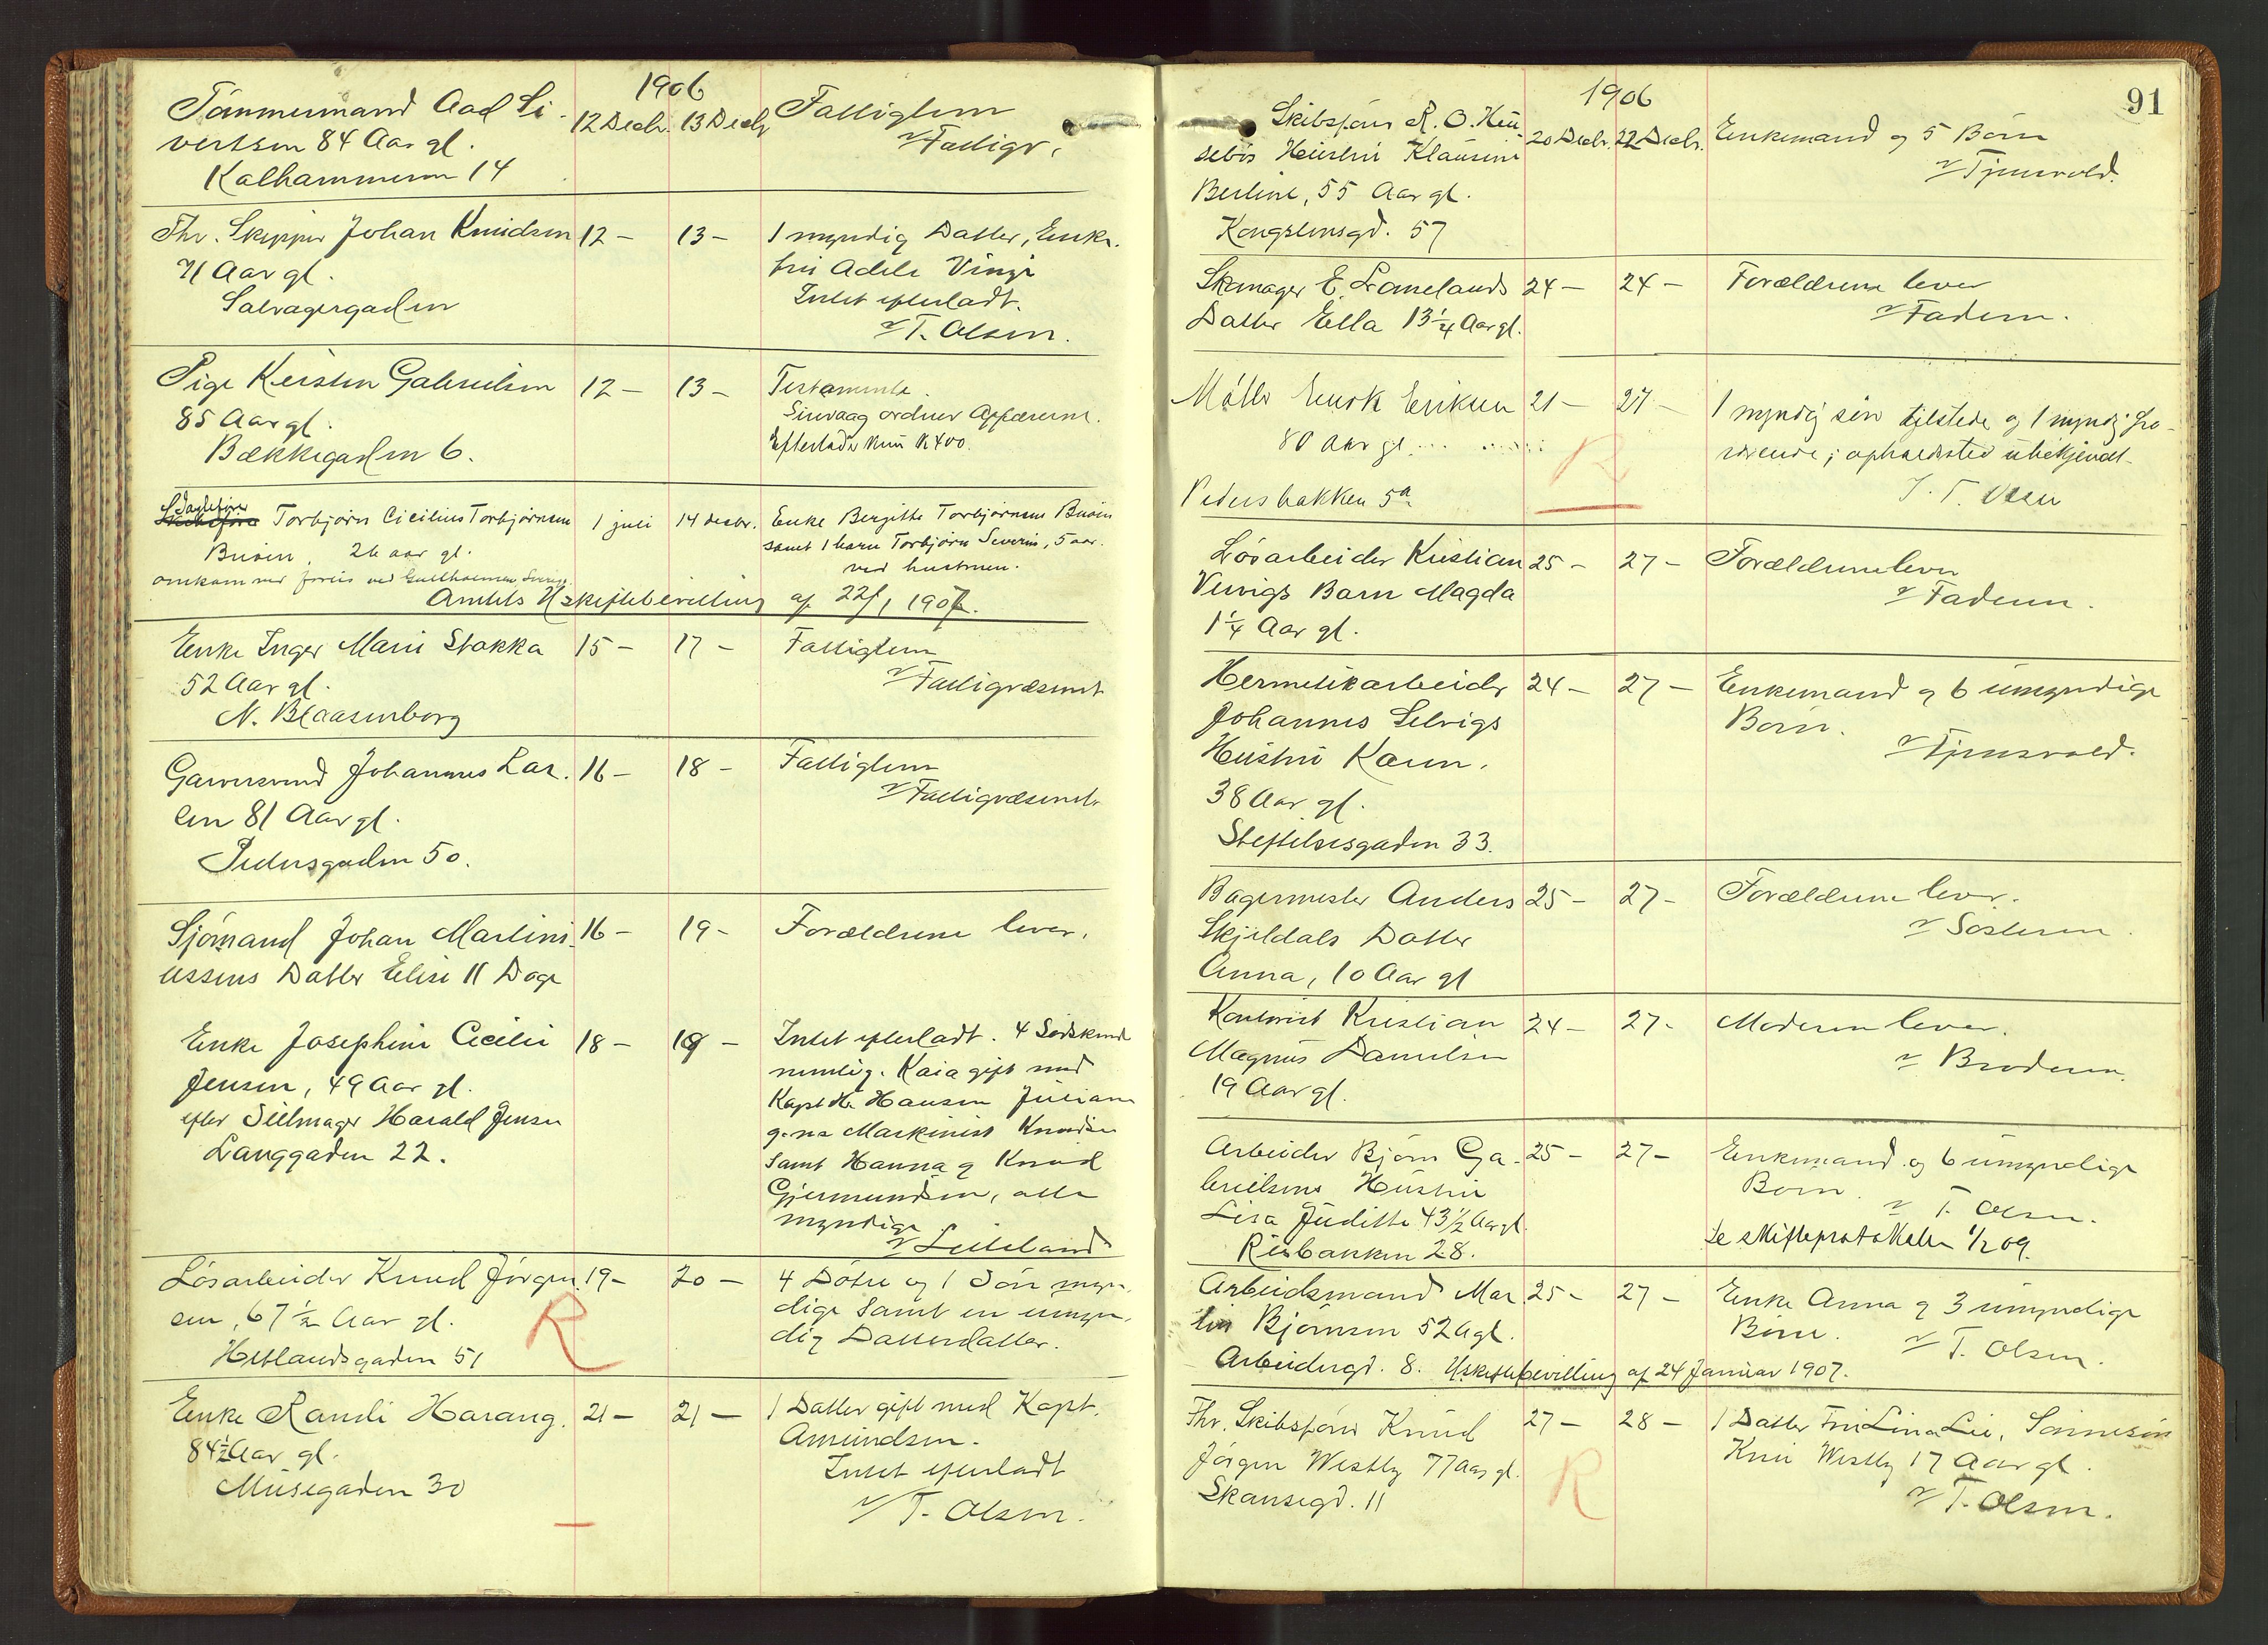 1906
Tømmermand Aad Si-
vertsen 84 Aar gl.
Kalhammeren 14
12 Decbr. 13 Decbr
Fattiglem
v/ Fattigv.
Fhv. Skipper Johan Knudsen
71 Aar gl.
Salvagergaden
12 — 13 —
1 myndig Datter, Enke-
fru Adele Vinje
Intet efterladt.
v/ T. Olsen.
Pige Kirsten Gabrielsen
85 Aar gl.
Bækkegaden 6.
12 — 13 —
Testamente.
Sirevaag ordner Affærerne.
Efterlader kun Kr 400.
Torbjørn Cicilius Torbjørnsen
Buøen, 26 aar gl.
omkom ved forlis ved Gullholmen, Sverige.
1 juli 14 decbr.
Enke Bergitte Torbjørnsen Buøen
samt 1 barn Torbjørn Severin, 5 aar.
ved hustruen.
Amtets Uskiftebevilling af 22/1 1907.
Enke Inger Marie Stakka
52 Aar gl.
N. Blaasenborg
15 — 17 —
Fattiglem
v/ Fattigvæsenet
Garversvend Johannes Lar-
sen 81 Aar gl.
Pedersgaden 50.
16 — 18 —
Fattiglem
v/ Fattigvæsenet
Sjømand Johan Martini-
ussens Datter Elise 11 Dage
16 — 19 —
Forældrene lever.
Enke Josephine Cecilie
Jensen, 49 Aar gl.
efter Seilmager Harald Jensen
Langgaden 22.
18 — 19 —
Intet efterladt. 4 Sødskend
nemlig. Kaia gift med
Kapt Hansen Juliane
g. m. Maskinist Knudsen
samt Hanna & Knud
Gjermundsen, alle
myndige
v/ Leiteland
Løsarbeider Knud Jørgen-
sen, 67 1/2 Aar gl.
Hetlandsgaden 51
19 — 20 —
R
4 Døtre og 1 Søn myn-
dige samt en umyn-
dig Datterdatter.
Enke Randi Harang.
84 1/2 Aar gl.
Musegaden 30
21 — 21 —
1 Datter gift med Kapt.
Amundsen.
Intet efterladt
v/ T. Olsen.
91
1906
Skibsfører R. O. Hau-
sebøs Hustru Klausine
Bertine, 55 Aar gl.
Kongstensgd. 57
20 Decbr. 22 Decbr.
Enkemand og 5 Børn
v/ Tjensvold.
Skomager E. Lomelands
Datter Ella 13 1/4 Aar gl.
24 — 24 —
Forældrene lever
v/ Faderen.
Enok Eriksen
80 Aar gl.
Pedersbakken 5a
21 — 27 —
R
1 myndig søn tilstede og 1 myndig fra-
værende; opholdssted ubekjendt
T. Olsen
Løsarbeider Kristian
Vervigs Barn Magda
1 1/4 Aar gl.
25 — 27 —
Forældrene lever
v/ Faderen.
Hermetikarbeider
Johannes Selvigs
Hustru Karen.
38 Aar gl.
Stiftelsesgaden 33.
24 — 27 —
Enkemand & 6 umyndige
Børn.
v/ Tjensvold.
Bagermester Anders
Skjeldals Datter
Anna, 10 Aar gl
25 — 27 —
Forældrene lever.
v/ Søsteren.
Kontorist Kristian
Magnus Danielsen
19 Aar gl.
24 — 27 —
Moderen lever.
v/ Broderen.
Arbeider Bjørn Ga-
brielsens Hustru
Lisa Juditte 43 1/2 Aar gl.
Risbakken 28.
25 — 27 —
Enkemand og 6 umyndige
Børn.
v/ T. Olsen.
Se skifteprotokollen 1/2 09.
Arbeidsmand Mar-
tin Bjørnsen 52 A gl.
Arbeidergd. 8. Uskiftebevilling af 24 Januar 1907.
25 — 27 —
Enke Anna & 3 umyndige
Børn.
v/ T. Olsen.
Fhv. Skibsfører Knud
Jørgen Westby 77 Aar gl.
Skansegd. 11
27 — 28 —
R
1 Datter Fru Lina Lie, Sønnesøn
Knu Westby 17 Aar gl.
v/ T. Olsen.